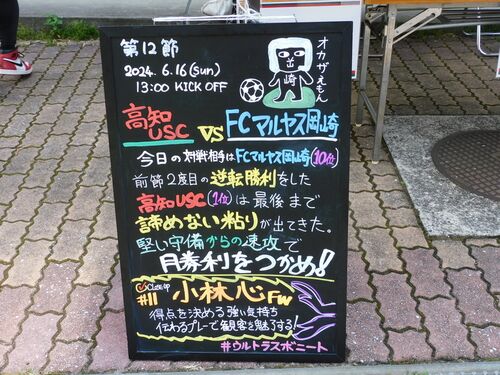 第12節
2024. 6.16(sun)
13:00 KICK OFF
オカザえもん
岡崎
高知USC VS FCマルヤス岡崎
今日の対戦相手はFCマルヤス岡崎(10位)
前節2度目の逆転勝利をした
高知USC(1位)は最後まで
諦めない粘りが出てきた。
堅い守備からの速攻で
勝利をつかめ!
Close up
#11 小林心 FW
得点を決める強い気持ち
伝わるプレーで観客を魅了する!
#ウルトラスボニート